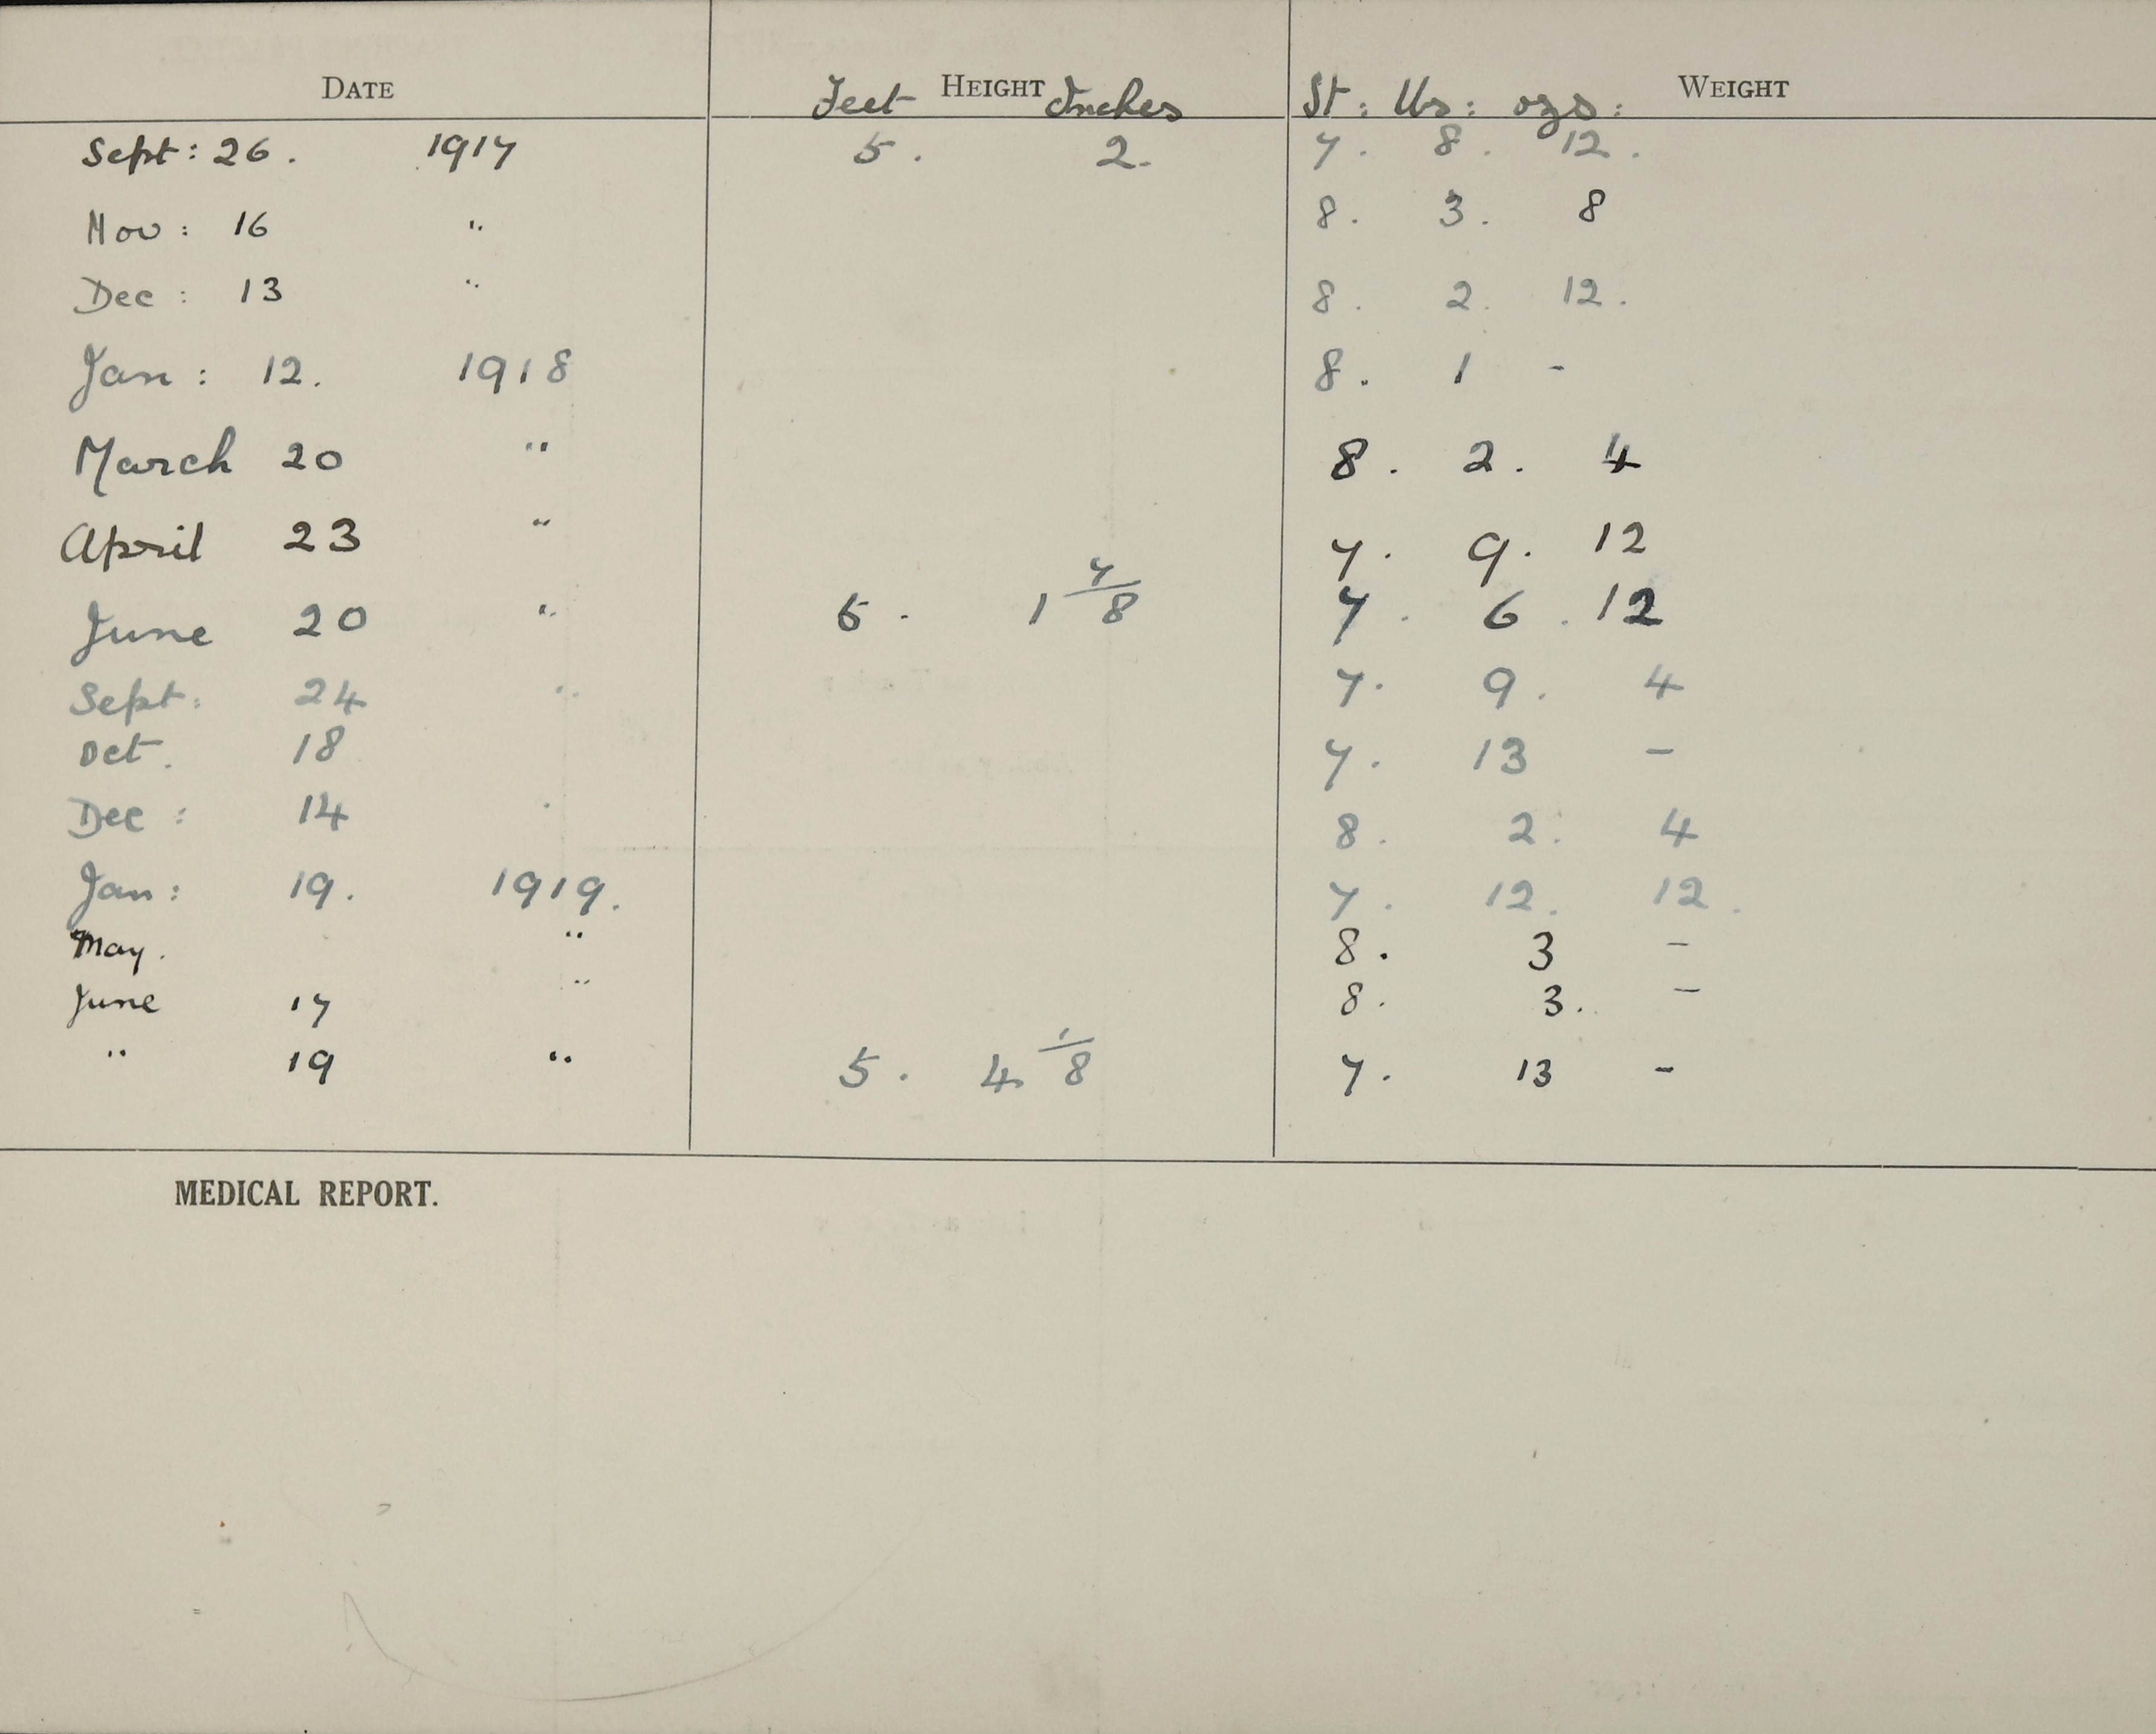 DATE HEIGHT WEIGHT
Feet Inches St: lbs: ozs:
Sept: 26. 1917 5. 2. 7. 8. 12.
Nov: 16 " 8. 3. 8
Dec: 13 " 8. 2. 12.
Jan: 12. 1918 8. 1 -
March 20 " 8. 2. 4
April 23 " 7. 9. 12
June 20 " 5. 1 7/8 7. 6. 12
Sept: 24 " 7. 9. 4
Oct. 18 7. 13 -
Dec: 14 " 8. 2. 4
Jan: 19. 1919. 7. 12. 12.
May. " 8. 3 -
June 17 " 8. 3. -
" 19 " 5. 4 1/8 7. 13 -
MEDICAL REPORT.